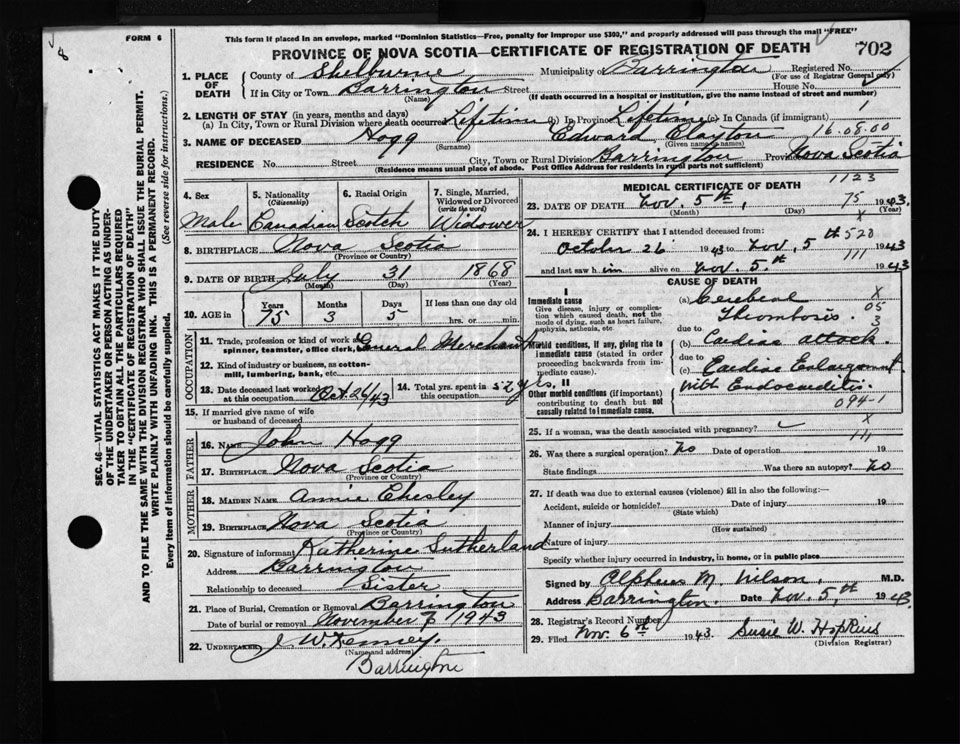 FORM 6
This form if placed in an envelope, marked "Dominion Statistics—Free, penalty for improper use $300," and properly addressed will pass through the mail "FREE"
8
PROVINCE OF NOVA SCOTIA—CERTIFICATE OF REGISTRATION OF DEATH 702
1. PLACE OF DEATH County of Shelburne Municipality of Barrington Registered No.
(For use of Registrar General only)
If in City or Town Barrington Street House No.
(Name) (If death occurred in a hospital or institution, give the name instead of street and number)
2. LENGTH OF STAY (in years, months and days)
(a) In City, Town or Rural Division where death occurred Lifetime (b) In Province Lifetime (c) In Canada (if immigrant)
3. NAME OF DECEASED Hogg Edward Clayton 16.08.00
(Surname) (Given name or names)
RESIDENCE No. Street City, Town or Rural Division Barrington Province Nova Scotia
(Residence means usual place of abode. Post Office Address for residents in rural parts not sufficient)
4. Sex Male
5. Nationality (Citizenship) Canadian
6. Racial Origin Scotch
7. Single, Married, Widowed or Divorced (write the word) Widower
8. BIRTHPLACE Nova Scotia
(Province or Country)
9. DATE OF BIRTH July 31 1868
(Month) (Day) (Year)
10. AGE in Years 75 Months 3 Days 5 If less than one day old
hrs. or min.
OCCUPATION
11. Trade, profession or kind of work as spinner, teamster, office clerk, etc. General Merchant
12. Kind of industry or business, as cotton-mill, lumbering, bank, etc.
13. Date deceased last worked at this occupation Oct 26/43
14. Total yrs. spent in this occupation 52 yrs.
15. If married give name of wife or husband of deceased
FATHER
16. NAME John Hogg
17. BIRTHPLACE Nova Scotia
(Province or Country)
MOTHER
18. MAIDEN NAME Annie Chesley
19. BIRTHPLACE Nova Scotia
(Province or Country)
20. Signature of informant Katherine Sutherland
Address Barrington
Relationship to deceased Sister
21. Place of Burial, Cremation or Removal Barrington
Date of burial or removal November 7 1943
22. UNDERTAKER J. W. Kenney.
(Name and address)
Barrington
MEDICAL CERTIFICATE OF DEATH 1123
23. DATE OF DEATH Nov. 5th, 75 1943
(Month) (Day) (Year)
24. I HEREBY CERTIFY that I attended deceased from: 520
October 26 1943 to Nov. 5th 1943
111
and last saw him alive on Nov. 5th 1943
CAUSE OF DEATH
I
Immediate cause
Give disease, injury or complication which caused death, not the mode of dying, such as heart failure, asphyxia, asthenia, etc.
(a) Cerebral Thrombosis.
05
3
due to
Morbid conditions, if any, giving rise to immediate cause (stated in order proceeding backwards from immediate cause).
(b) Cardiac attack.
due to
(c) Cardiac Enlargement
with Endocarditis.
II
Other morbid conditions (if important) contributing to death but not causally related to immediate cause.
094-1
25. If a woman, was the death associated with pregnancy?
111
26. Was there a surgical operation? No Date of operation 19
State findings Was there an autopsy? No
27. If death was due to external causes (violence) fill in also the following:—
Accident, suicide or homicide? Date of injury 19
(State which)
Manner of injury
(How sustained)
Nature of injury
Specify whether injury occurred in industry, in home, or in public place
Signed by Alpheus M. Wilson. M.D.
Address Barrington. Date Nov. 5th 1943
28. Registrar's Record Number
29. Filed Nov. 6th 1943. Susie W. Hopkins
(Division Registrar)
SEC. 46—VITAL STATISTICS ACT MAKES IT THE DUTY
OF THE UNDERTAKER OR PERSON ACTING AS UNDER-
TAKER TO OBTAIN ALL THE PARTICULARS REQUIRED
IN THE "CERTIFICATE OF REGISTRATION OF DEATH"
AND TO FILE THE SAME WITH THE DIVISION REGISTRAR WHO SHALL ISSUE THE BURIAL PERMIT.
WRITE PLAINLY WITH UNFADING INK. THIS IS A PERMANENT RECORD.
Every item of information should be carefully supplied. (See reverse side for instructions.)